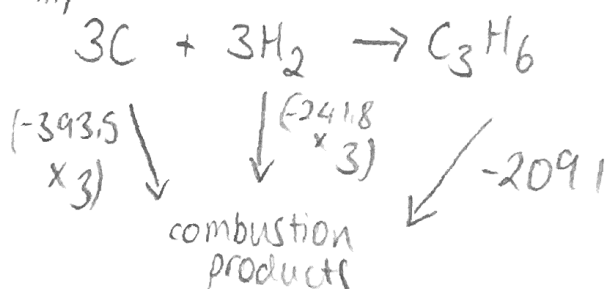 3C + 3H₂ → C₃H₆
(-393.5 × 3)
(-241.8 × 3)
-2091
combustion
products